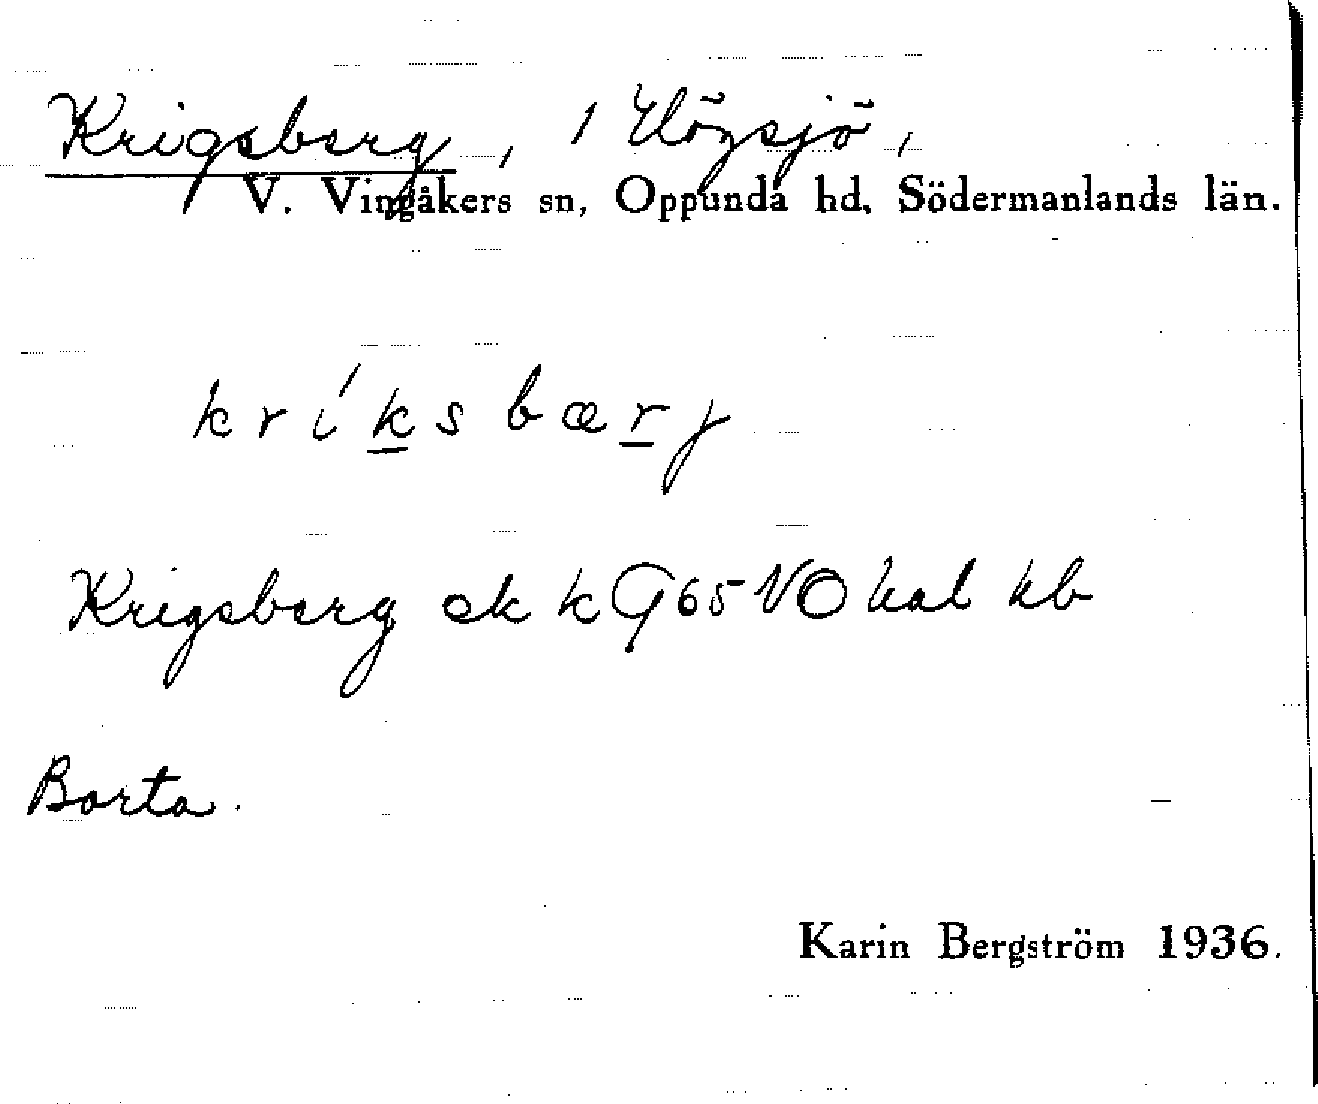 Krigsberg, / Högsjö,
V. Vingåkers sn, Oppunda hd, Södermanlands län.
kríksbærj
Krigsberg ek k G65 VO hal kb
Borta.
Karin Bergström 1936.